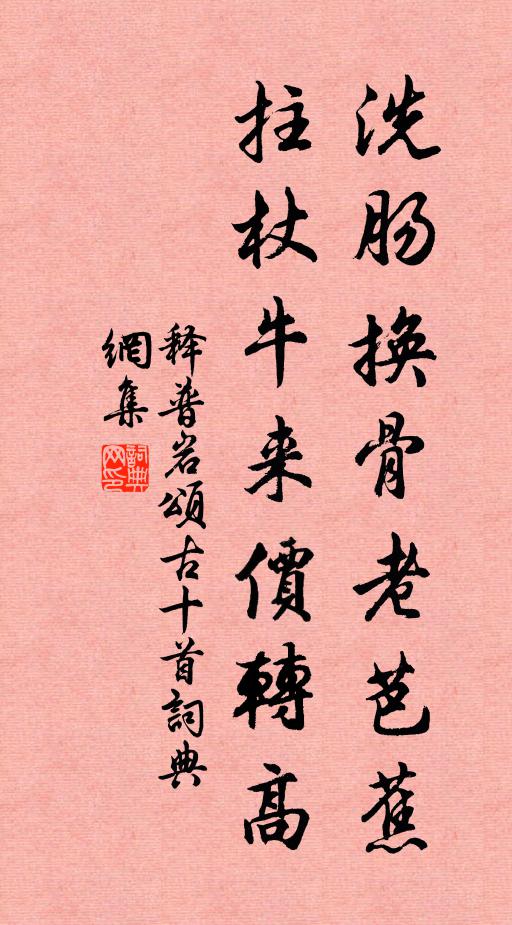 洗肠换骨老芭蕉
拄杖牛来價轉高
释普岩頌古十首詞典
網集
詞典
网印